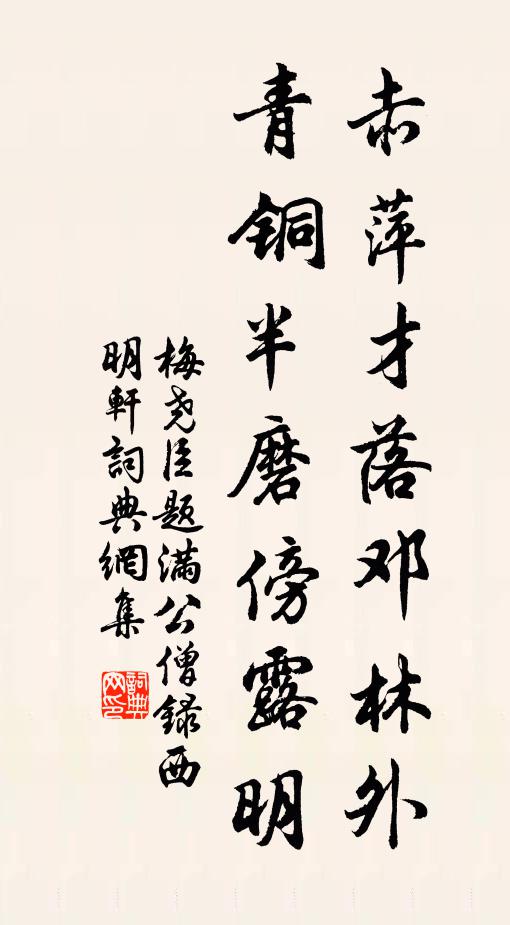 赤萍才落邓林外
青铜半磨傍露明
梅尧臣题满公僧録西
明軒詞典網集
詞典
网印